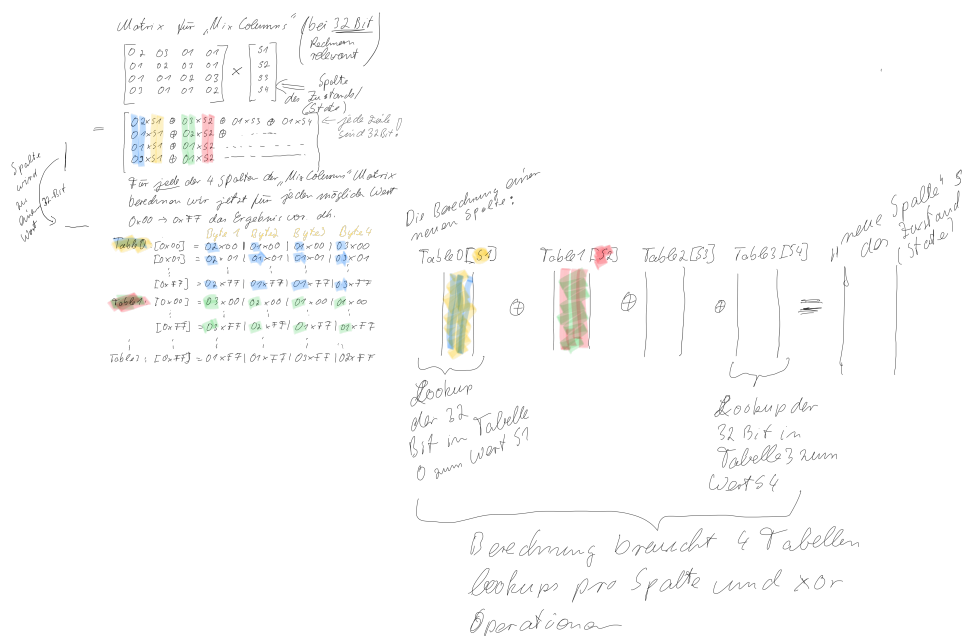 Matrix für „Mix Columns" (bei 32 Bit
Rechnern
relevant)
02 03 01 01
01 02 03 01
01 01 02 03
03 01 01 02
×
S1
S2
S3
S4
Spalte
des Zustands/
(State)
= 02×S1 ⊕ 03×S2 ⊕ 01×S3 ⊕ 01×S4
01×S1 ⊕ 02×S2 ⊕
01×S1 ⊕ 01×S2
03×S1 ⊕ 01×S2
← jede Zeile
sind 32 Bit!
Spalte
wird
zu
32-Bit
Wort
Für jede der 4 Spalten der „Mix Columns" Matrix
berechnen wir jetzt für jeden möglichen Wert
0x00 → 0xFF das Ergebnis vor dh.
Byte 1 Byte2 Byte3 Byte 4
Table0 [0x00] = 02×00 | 01×00 | 01×00 | 03×00
[0x01] = 02×01 | 01×01 | 01×01 | 03×01
[0xFF] = 02×FF | 01×FF | 01×FF | 03×FF
Table1 [0x00] = 03×00 | 02×00 | 01×00 | 01×00
[0xFF] = 03×FF | 02×FF | 01×FF | 01×FF
[0xFF] = 01×FF | 01×FF | 03×FF | 02×FF
Die Berechnung einer
neuen Spalte:
Table0[S1] Table1[S2] Table2[S3] Table3[S4]
⊕ ⊕ ⊕ =
„neue Spalte" S
des Zustand
(State)
Lookup
der 32
Bit in Tabelle
0 zum Wert S1
Lookup der
32 Bit in
Tabelle 3 zum
Wert S4
Berechnung braucht 4 Tabellen
lookups pro Spalte und xor
Operationen